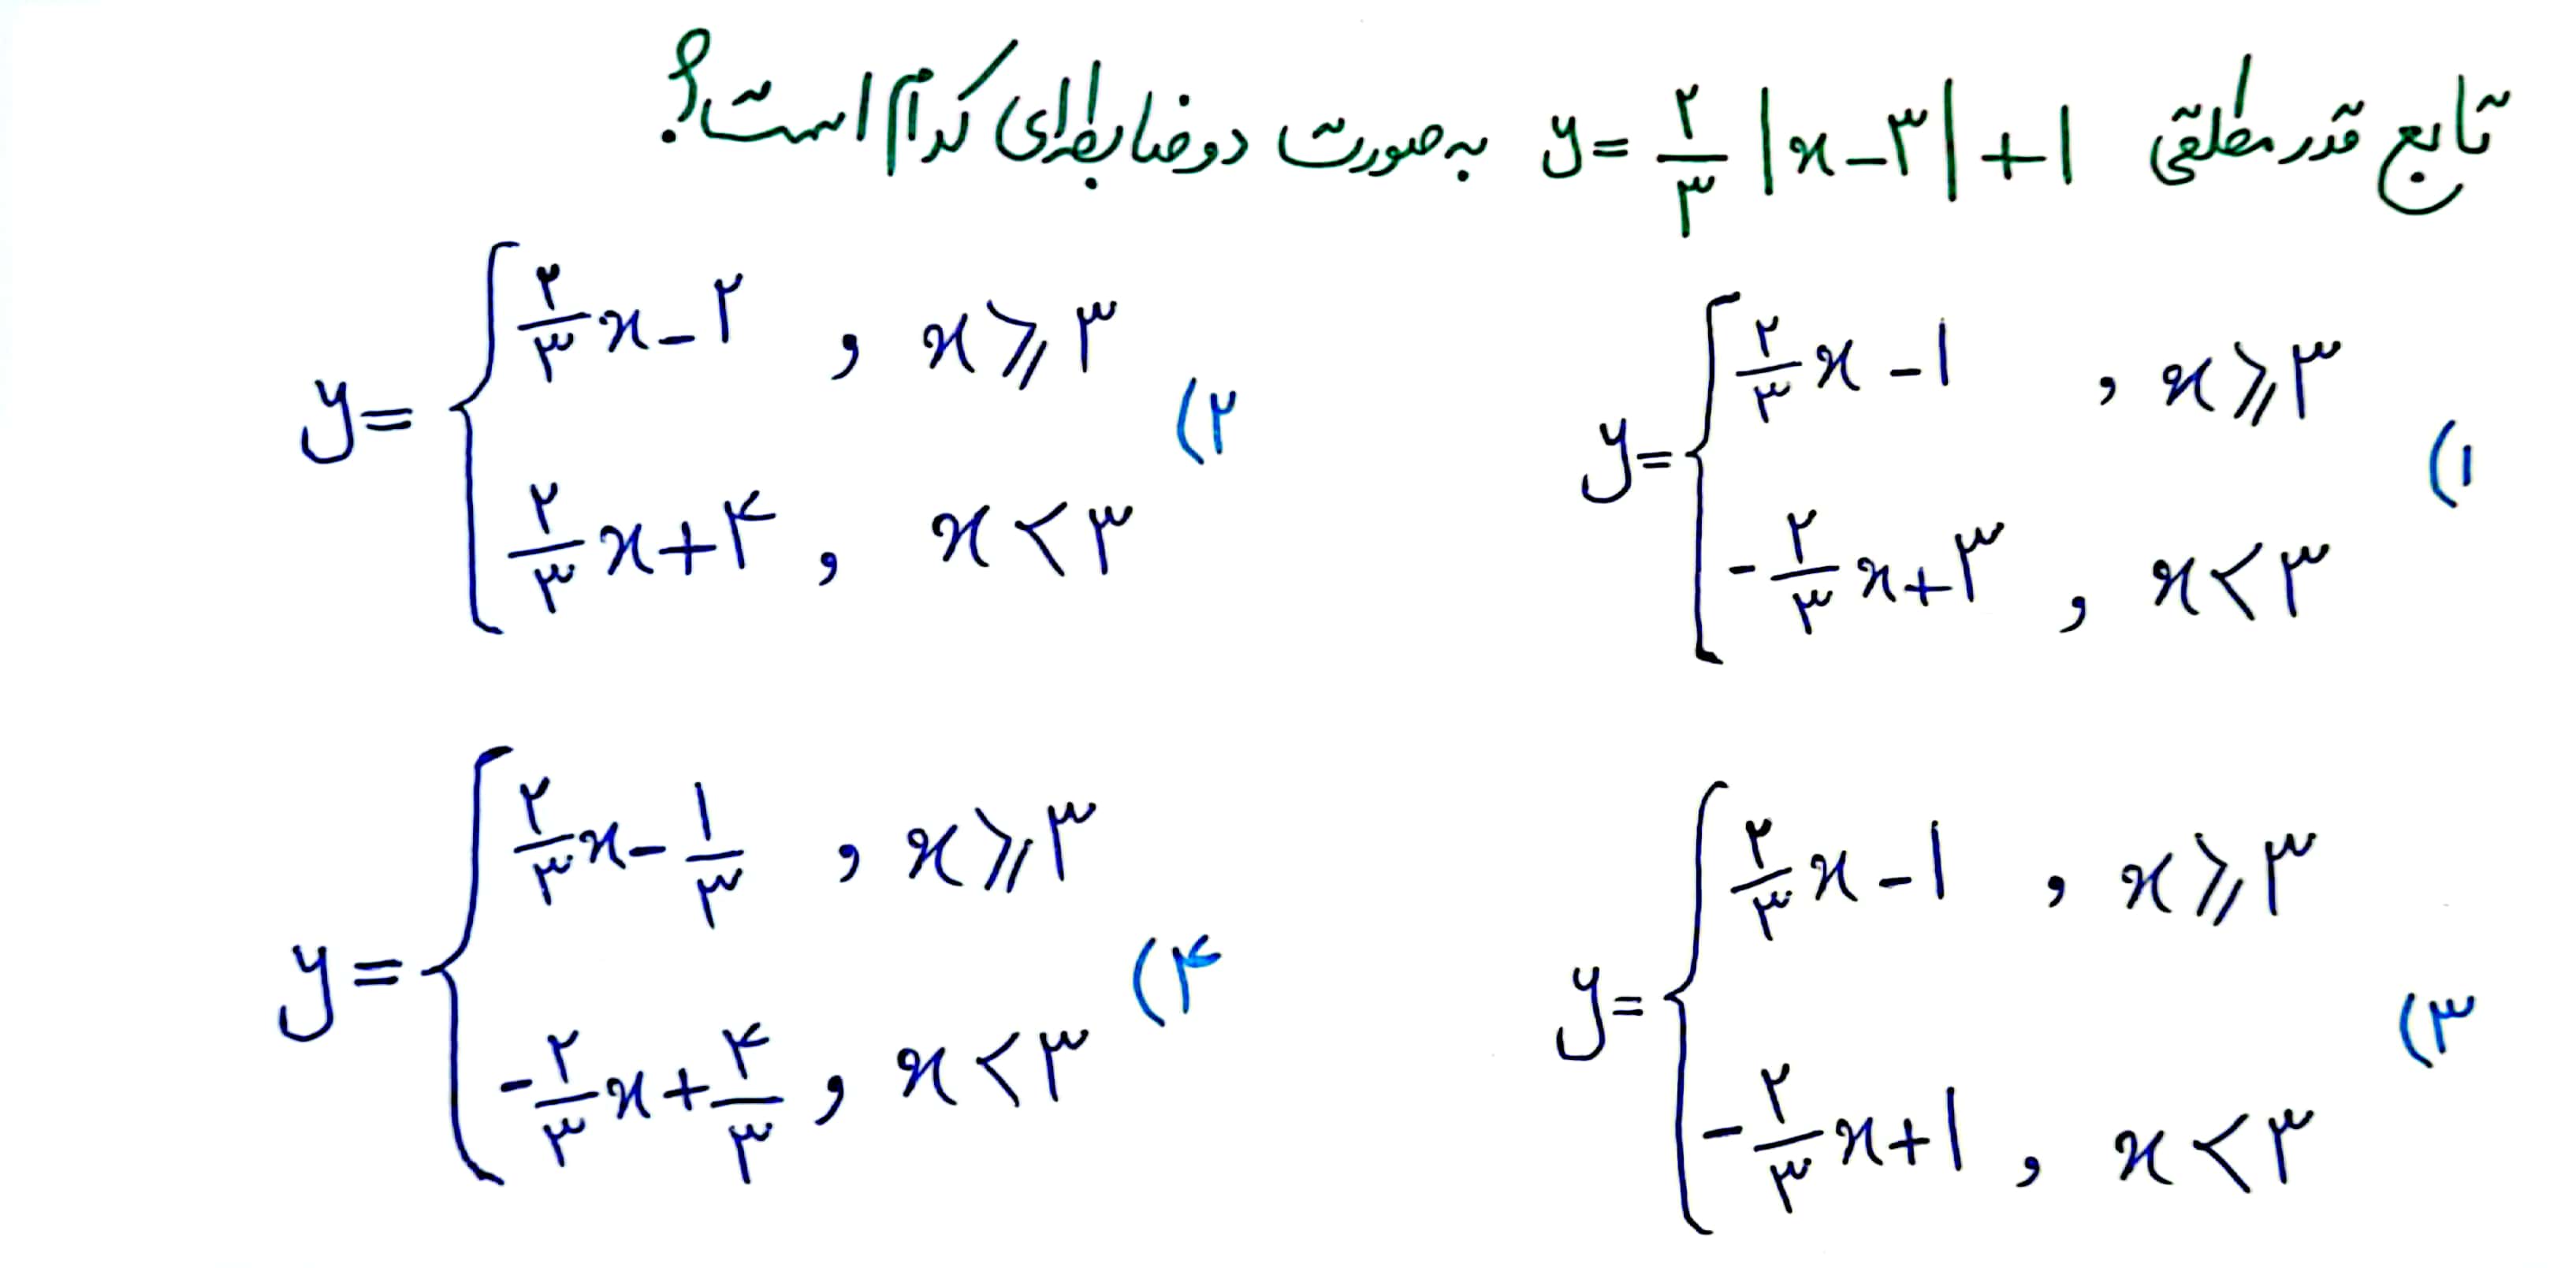 تابع قدرمطلقی y = ۲/۳ |x-۳| + ۱ به صورت دو ضابطه‌ای کدام است؟
۱) y = { ۲/۳ x - ۱ , x ⩾ ۳
-۲/۳ x + ۳ , x < ۳
۲) y = { ۲/۳ x - ۲ , x ⩾ ۳
۲/۳ x + ۴ , x < ۳
۳) y = { ۲/۳ x - ۱ , x ⩾ ۳
-۲/۳ x + ۱ , x < ۳
۴) y = { ۲/۳ x - ۱/۳ , x ⩾ ۳
-۲/۳ x + ۴/۳ , x < ۳